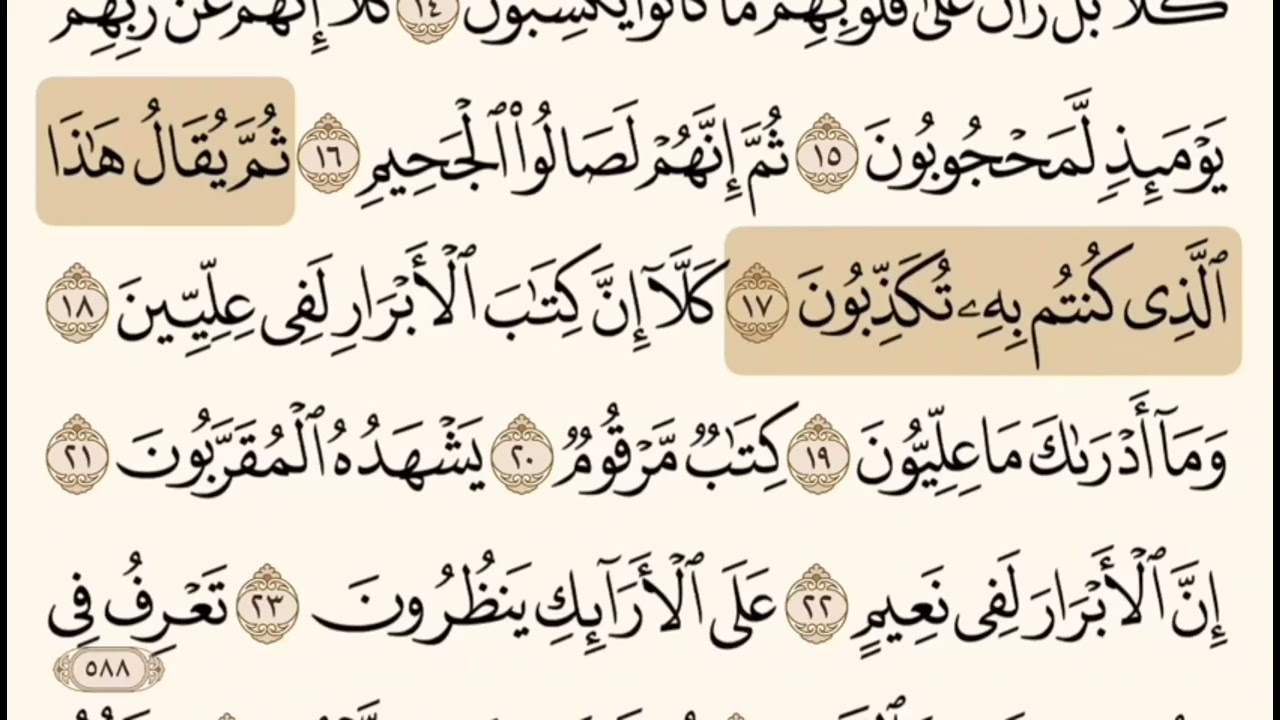 كَلَّا بَلْ رَانَ عَلَىٰ قُلُوبِهِم مَّا كَانُوا۟ يَكْسِبُونَ ١٤ كَلَّآ إِنَّهُمْ عَن رَّبِّهِمْ
يَوْمَئِذٍ لَّمَحْجُوبُونَ ١٥ ثُمَّ إِنَّهُمْ لَصَالُوا۟ ٱلْجَحِيمِ ١٦ ثُمَّ يُقَالُ هَٰذَا
ٱلَّذِى كُنتُم بِهِۦ تُكَذِّبُونَ ١٧ كَلَّآ إِنَّ كِتَٰبَ ٱلْأَبْرَارِ لَفِى عِلِّيِّينَ ١٨
وَمَآ أَدْرَىٰكَ مَا عِلِّيُّونَ ١٩ كِتَٰبٌ مَّرْقُومٌ ٢٠ يَشْهَدُهُ ٱلْمُقَرَّبُونَ ٢١
إِنَّ ٱلْأَبْرَارَ لَفِى نَعِيمٍ ٢٢ عَلَى ٱلْأَرَآئِكِ يَنظُرُونَ ٢٣ تَعْرِفُ فِى
٥٨٨